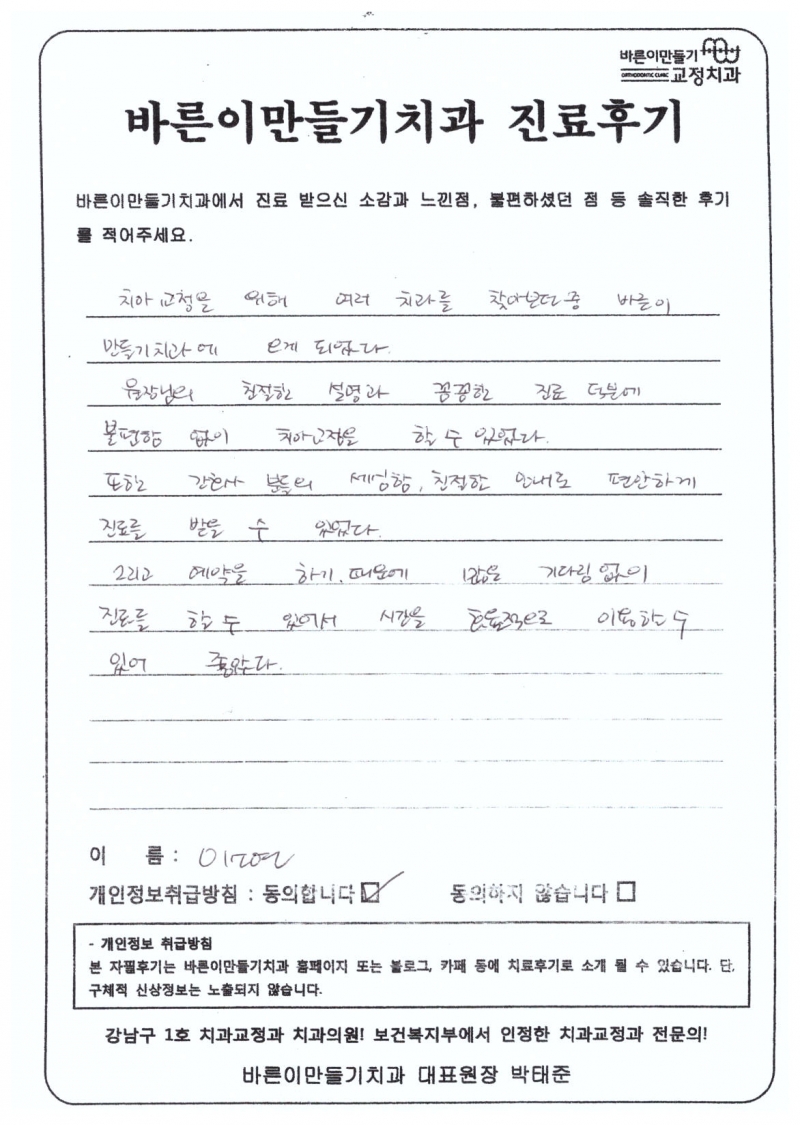 바른이만들기
ORTHODONTIC CLINIC 교정치과
바른이만들기치과 진료후기
바른이만들기치과에서 진료 받으신 소감과 느낀점, 불편하셨던 점 등 솔직한 후기
를 적어주세요.
치아 교정을 위해 여러 치과를 찾아보던 중 바른이
만들기치과에 오게 되었다.
원장님의 친절한 설명과 꼼꼼한 진료 덕분에
불편함 없이 치아교정을 할 수 있었다.
또한 간호사 분들의 세심함, 친절한 안내로 편안하게
진료를 받을 수 있었다.
그리고 예약을 하기 때문에 기다림 없이
진료를 할 수 있어서 시간을 효율적으로 이용할 수
있어 좋았다.
이 름 :
개인정보취급방침 : 동의합니다 ☑ 동의하지 않습니다 □
- 개인정보 취급방침
본 자필후기는 바른이만들기치과 홈페이지 또는 블로그, 카페 등에 치료후기로 소개 될 수 있습니다. 단,
구체적 신상정보는 노출되지 않습니다.
강남구 1호 치과교정과 치과의원! 보건복지부에서 인정한 치과교정과 전문의!
바른이만들기치과 대표원장 박태준